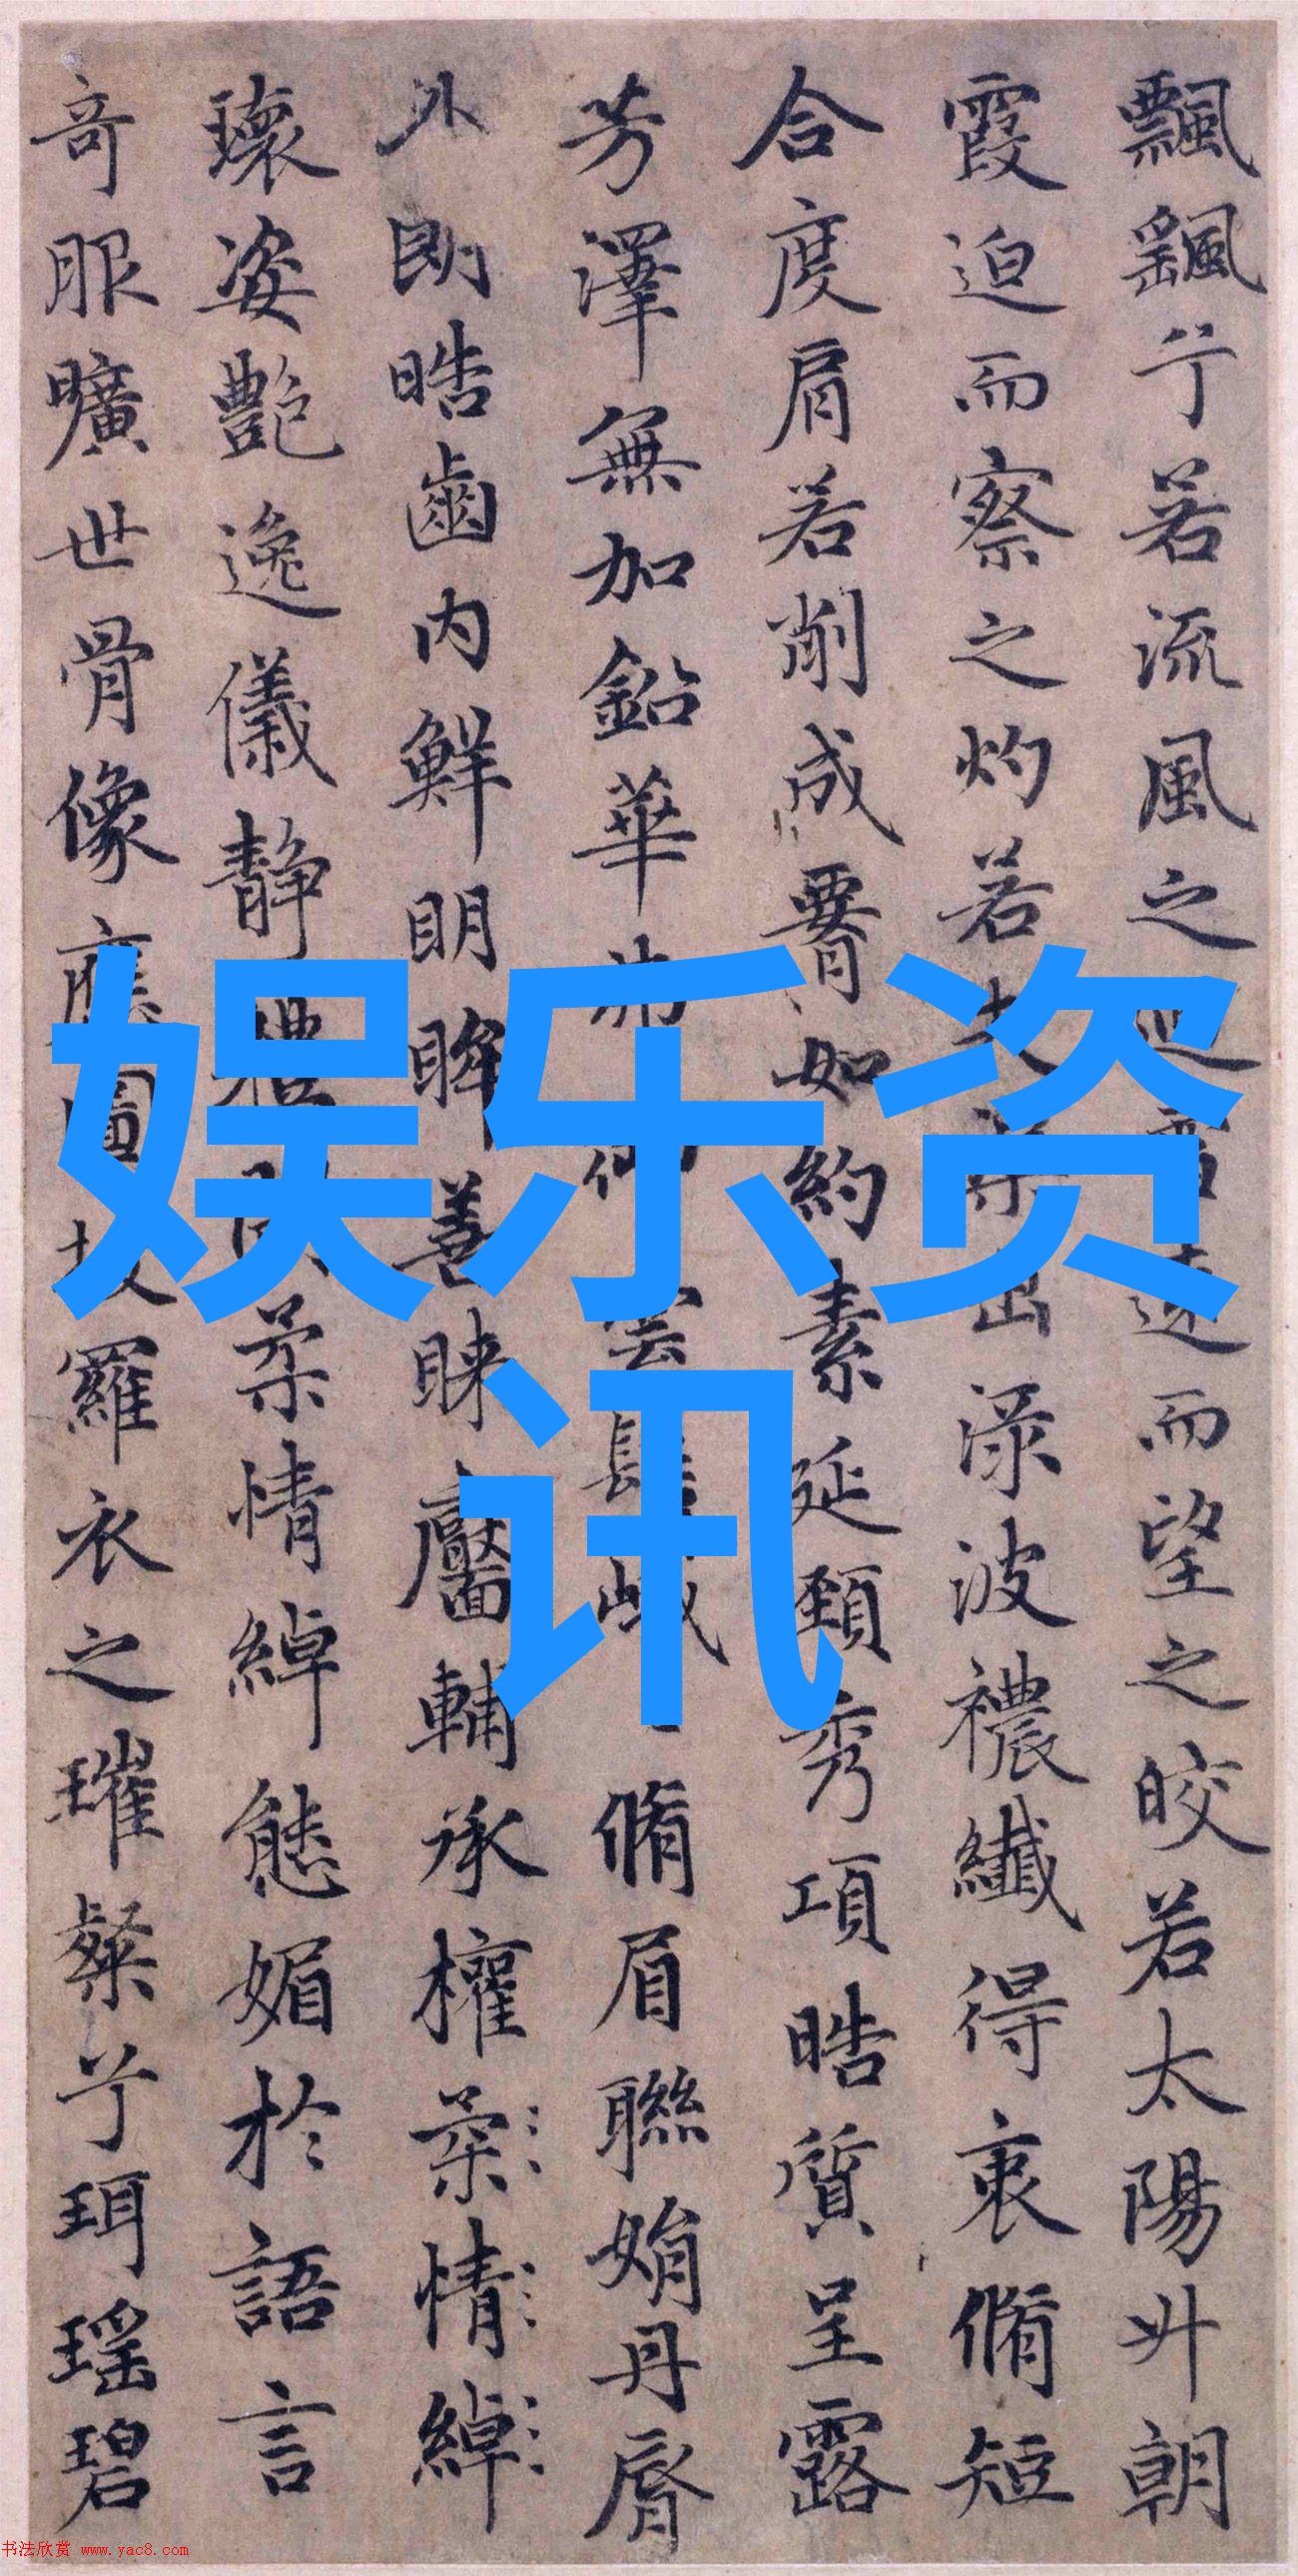 飄飖兮若流風之遠而望之皎若太陽升朝
霞迫而察之灼若出淥波襛纖得衷脩短
合度肩若削成腰如約素延頸秀項皓質呈露
芳澤無加鉛華雲脩眉聯娟丹脣
外朗皓齒内鮮明眸善睞靨輔承權柔情綽
瓌姿艷逸儀静柔情綽態媚於語言
奇服曠世骨像應圖披羅衣之璀粲兮珥瑶碧
娱乐资
讯
书法欣赏 www.yac8.com